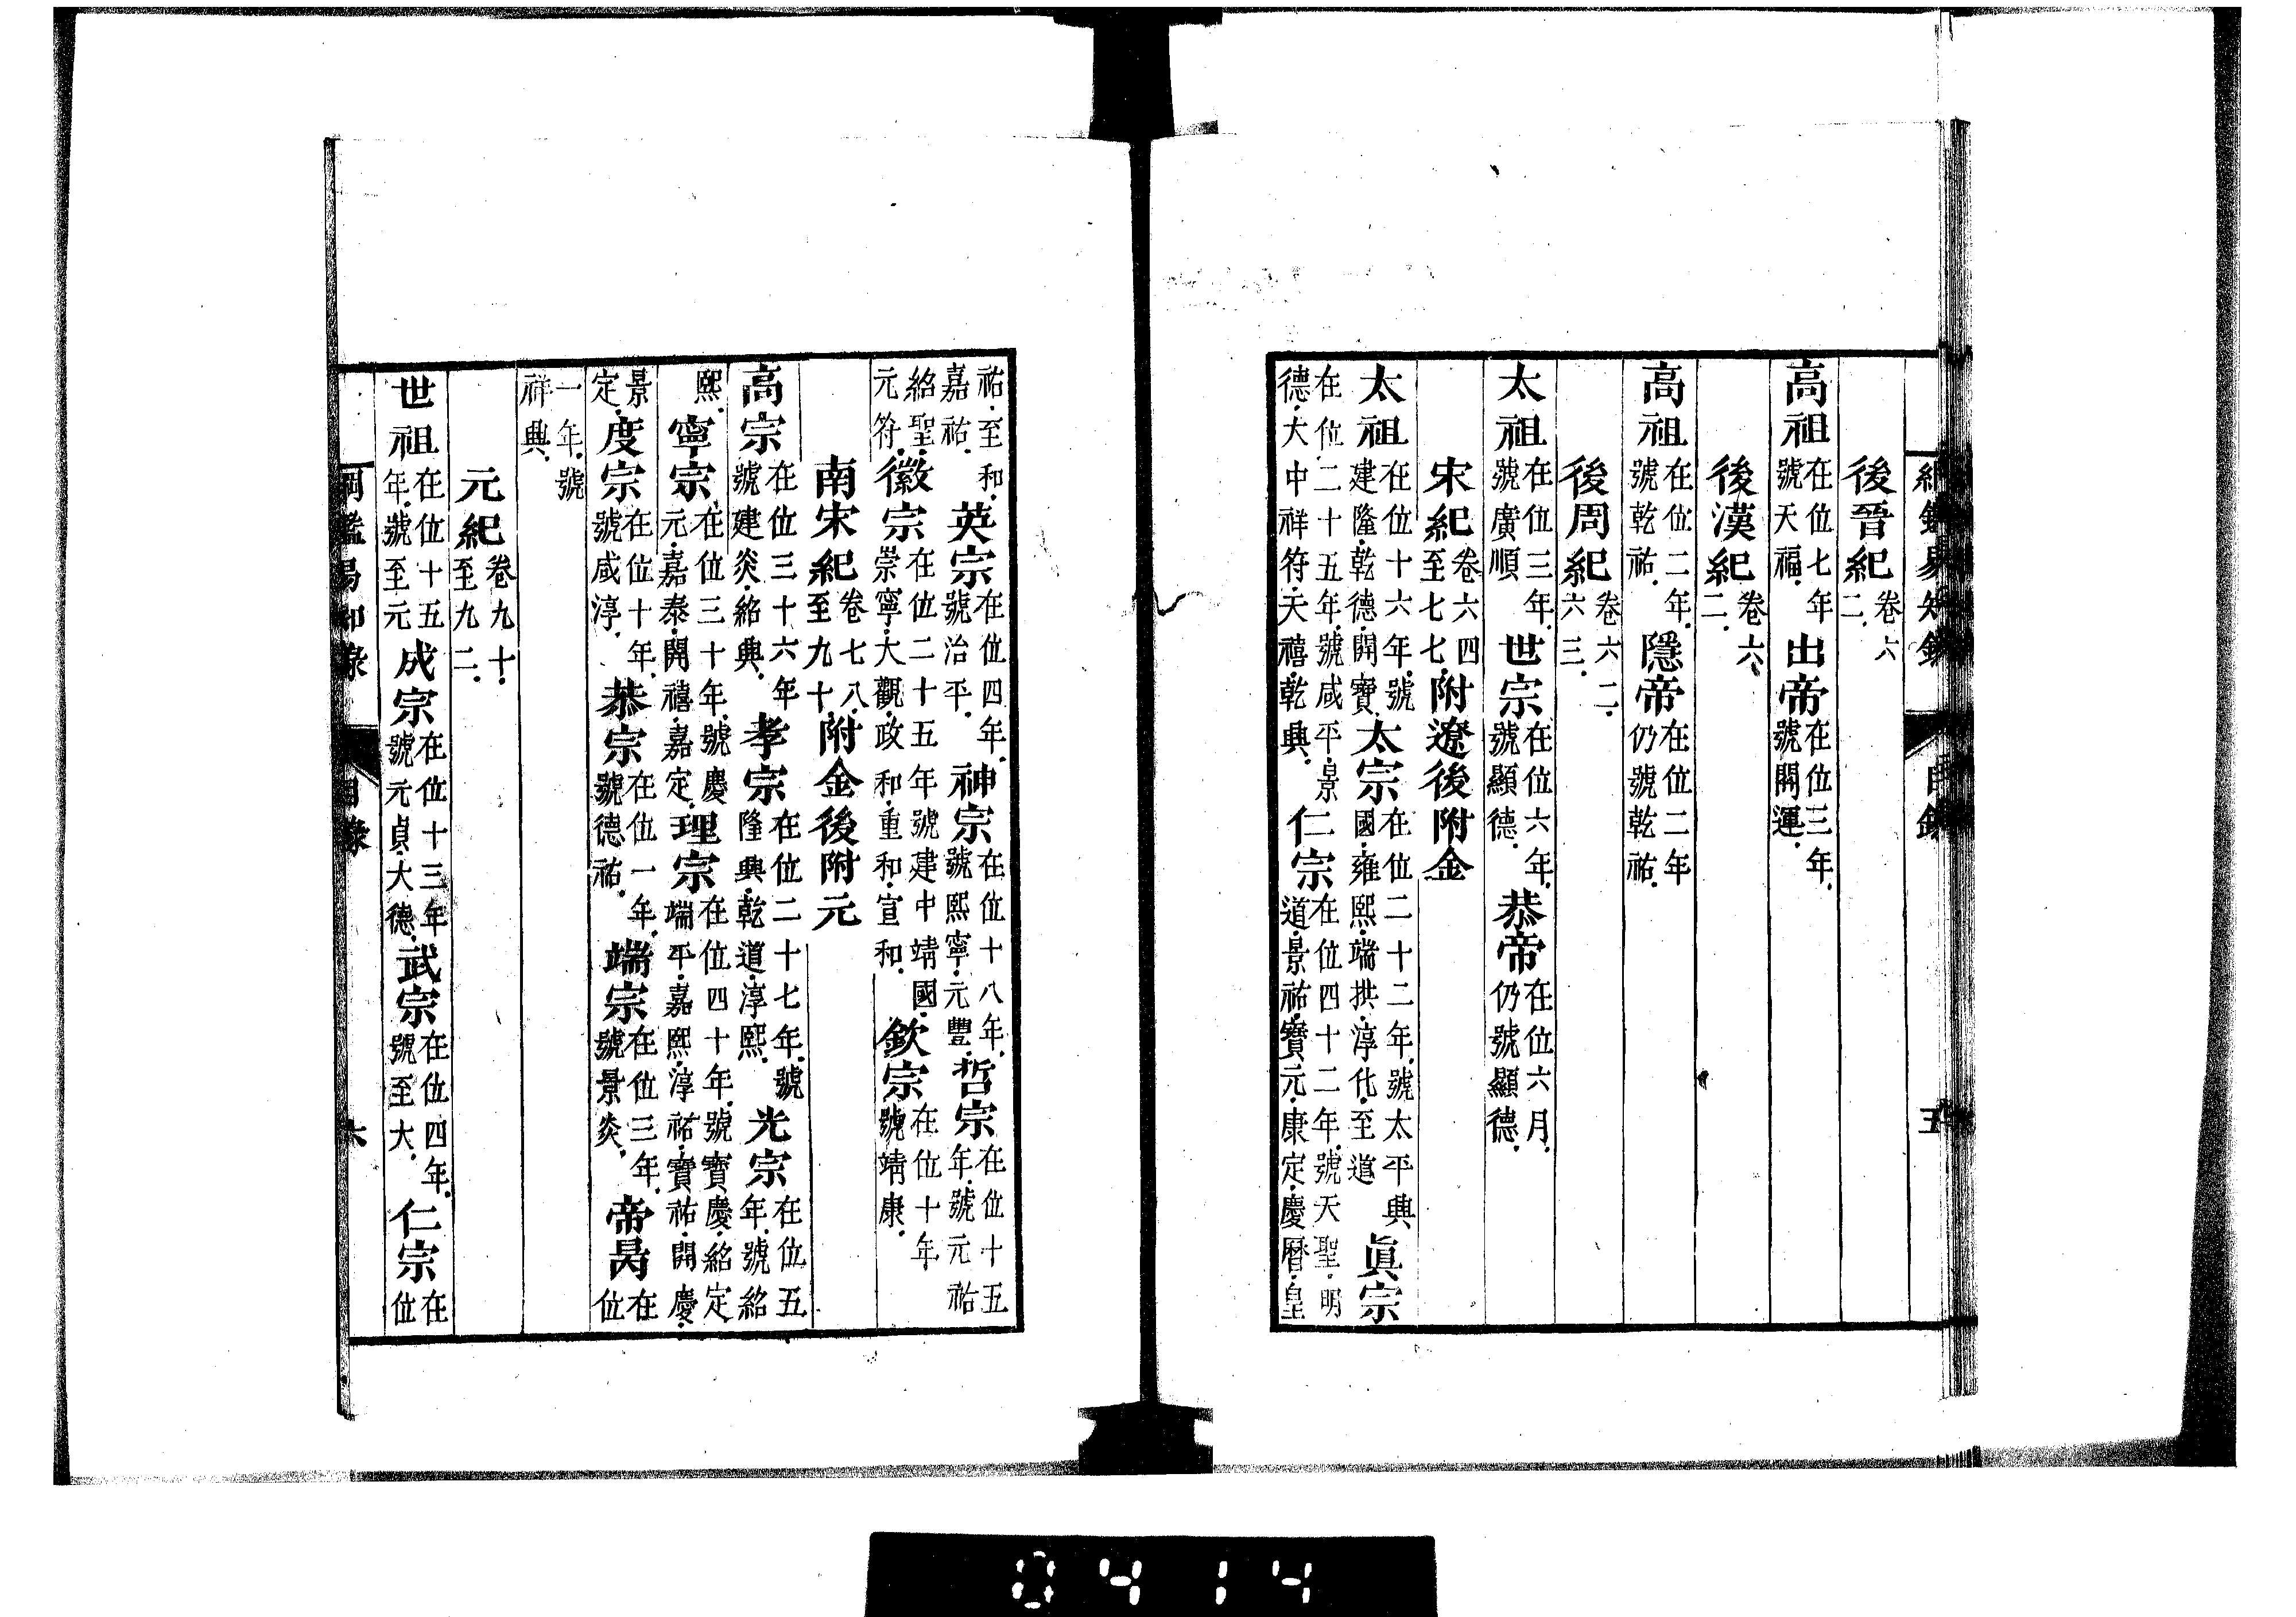 綱鑑易知錄 目錄 五
後晉紀卷六二
高祖在位七年號天福 出帝在位三年號開運
後漢紀卷六二
高祖在位二年號乾祐 隱帝在位二年仍號乾祐
後周紀卷六二六三
太祖在位三年號廣順 世宗在位六年號顯德 恭帝在位六月仍號顯德
宋紀卷六四至七七附遼後附金
太祖在位十六年號建隆乾德開寶 太宗在位二十二年號太平興國雍熙端拱淳化至道 眞宗
在位二十五年號咸平景德大中祥符天禧乾興 仁宗在位四十二年號天聖明道景祐寶元康定慶曆皇
祐至和嘉祐 英宗在位四年號治平 神宗在位十八年號熙寧元豐 哲宗在位十五年號元祐
紹聖元符 徽宗在位二十五年號建中靖國崇寧大觀政和重和宣和 欽宗在位十年號靖康
南宋紀卷七八至九十附金後附元
高宗在位三十六年號建炎紹興 孝宗在位二十七年號隆興乾道淳熙 光宗在位五年號紹
熙 寧宗在位三十年號慶元嘉泰開禧嘉定 理宗在位四十年號寶慶紹定端平嘉熙淳祐寶祐開慶
景定 度宗在位十年號咸淳 恭宗在位一年號德祐 端宗在位三年號景炎 帝昺在位
一年號祥興
元紀卷九十至九二
世祖在位十五年號至元 成宗在位十三年號元貞大德 武宗在位四年號至大 仁宗在位
綱鑑易知錄 目錄 六
0414